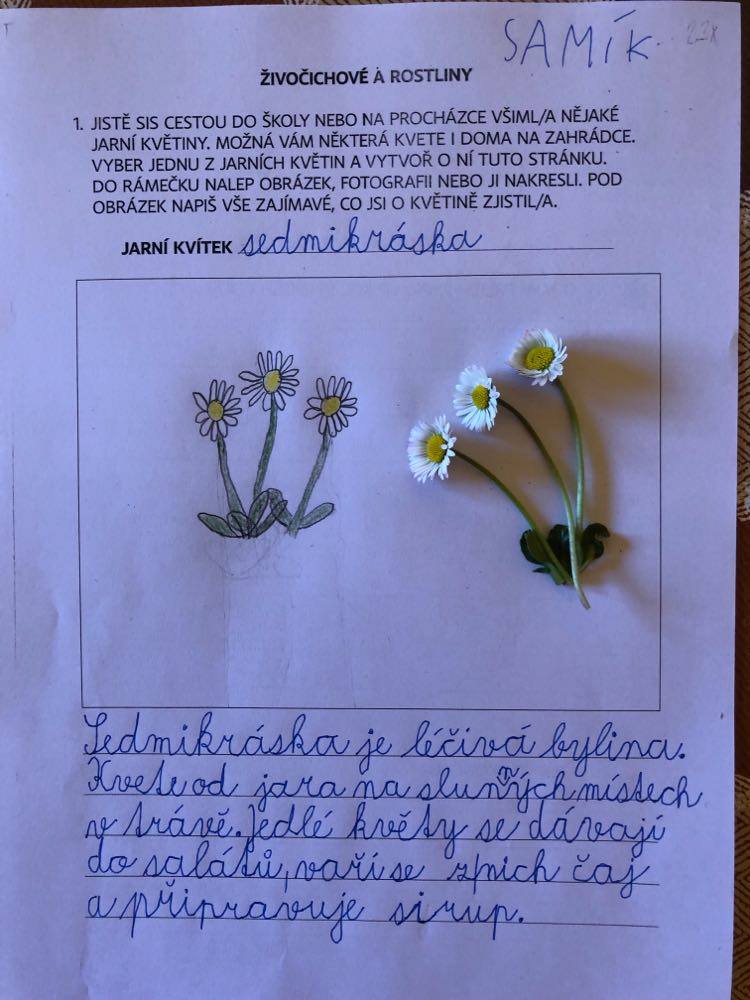 SAMÍK
ŽIVOČICHOVÉ A ROSTLINY
1. JISTĚ SIS CESTOU DO ŠKOLY NEBO NA PROCHÁZCE VŠIML/A NĚJAKÉ
JARNÍ KVĚTINY. MOŽNÁ VÁM NĚKTERÁ KVETE I DOMA NA ZAHRÁDCE.
VYBER JEDNU Z JARNÍCH KVĚTIN A VYTVOŘ O NÍ TUTO STRÁNKU.
DO RÁMEČKU NALEP OBRÁZEK, FOTOGRAFII NEBO JI NAKRESLI. POD
OBRÁZEK NAPIŠ VŠE ZAJÍMAVÉ, CO JSI O KVĚTINĚ ZJISTIL/A.
JARNÍ KVÍTEK sedmikráska
Sedmikráska je léčivá bylina.
Kvete od jara na slunných místech
v trávě. Jedlé květy se dávají
do salátů, vaří se z nich čaj
a připravuje sirup.